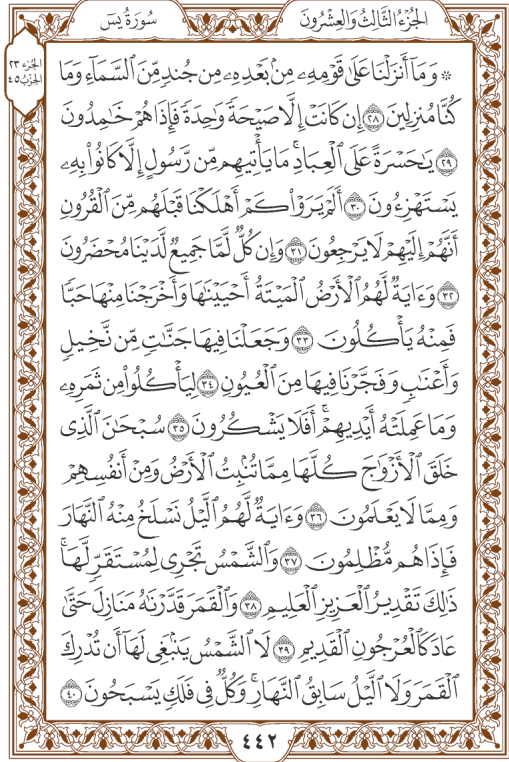 الجُزْءُ الثَّالِثُ وَالعِشْرُونَ
سُورَةُ يسٓ
الجُزء ٢٣
الحِزب ٤٥
۞ وَمَآ أَنزَلْنَا عَلَىٰ قَوْمِهِۦ مِنۢ بَعْدِهِۦ مِن جُندٍ مِّنَ ٱلسَّمَآءِ وَمَا
كُنَّا مُنزِلِينَ ٢٨ إِن كَانَتْ إِلَّا صَيْحَةً وَٰحِدَةً فَإِذَا هُمْ خَٰمِدُونَ
٢٩ يَٰحَسْرَةً عَلَى ٱلْعِبَادِ ۚ مَا يَأْتِيهِم مِّن رَّسُولٍ إِلَّا كَانُوا۟ بِهِۦ
يَسْتَهْزِءُونَ ٣٠ أَلَمْ يَرَوْا۟ كَمْ أَهْلَكْنَا قَبْلَهُم مِّنَ ٱلْقُرُونِ
أَنَّهُمْ إِلَيْهِمْ لَا يَرْجِعُونَ ٣١ وَإِن كُلٌّ لَّمَّا جَمِيعٌ لَّدَيْنَا مُحْضَرُونَ
٣٢ وَءَايَةٌ لَّهُمُ ٱلْأَرْضُ ٱلْمَيْتَةُ أَحْيَيْنَٰهَا وَأَخْرَجْنَا مِنْهَا حَبًّا
فَمِنْهُ يَأْكُلُونَ ٣٣ وَجَعَلْنَا فِيهَا جَنَّٰتٍ مِّن نَّخِيلٍ
وَأَعْنَٰبٍ وَفَجَّرْنَا فِيهَا مِنَ ٱلْعُيُونِ ٣٤ لِيَأْكُلُوا۟ مِن ثَمَرِهِۦ
وَمَا عَمِلَتْهُ أَيْدِيهِمْ ۚ أَفَلَا يَشْكُرُونَ ٣٥ سُبْحَٰنَ ٱلَّذِى
خَلَقَ ٱلْأَزْوَٰجَ كُلَّهَا مِمَّا تُنۢبِتُ ٱلْأَرْضُ وَمِنْ أَنفُسِهِمْ
وَمِمَّا لَا يَعْلَمُونَ ٣٦ وَءَايَةٌ لَّهُمُ ٱلَّيْلُ نَسْلَخُ مِنْهُ ٱلنَّهَارَ
فَإِذَا هُم مُّظْلِمُونَ ٣٧ وَٱلشَّمْسُ تَجْرِى لِمُسْتَقَرٍّ لَّهَا ۚ
ذَٰلِكَ تَقْدِيرُ ٱلْعَزِيزِ ٱلْعَلِيمِ ٣٨ وَٱلْقَمَرَ قَدَّرْنَٰهُ مَنَازِلَ حَتَّىٰ
عَادَ كَٱلْعُرْجُونِ ٱلْقَدِيمِ ٣٩ لَا ٱلشَّمْسُ يَنۢبَغِى لَهَآ أَن تُدْرِكَ
ٱلْقَمَرَ وَلَا ٱلَّيْلُ سَابِقُ ٱلنَّهَارِ ۚ وَكُلٌّ فِى فَلَكٍ يَسْبَحُونَ ٤٠
٤٤٢